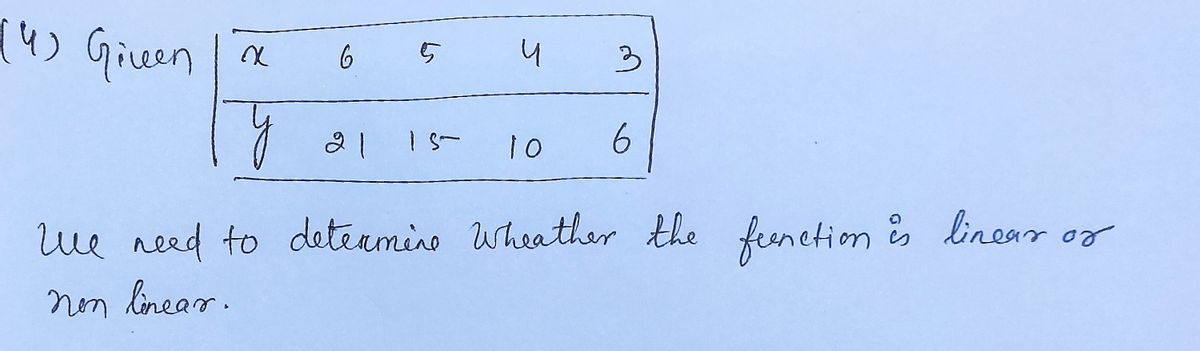 (4) Given x 6 5 4 3
y 21 15 10 6
We need to determine wheather the function is linear or
non linear.